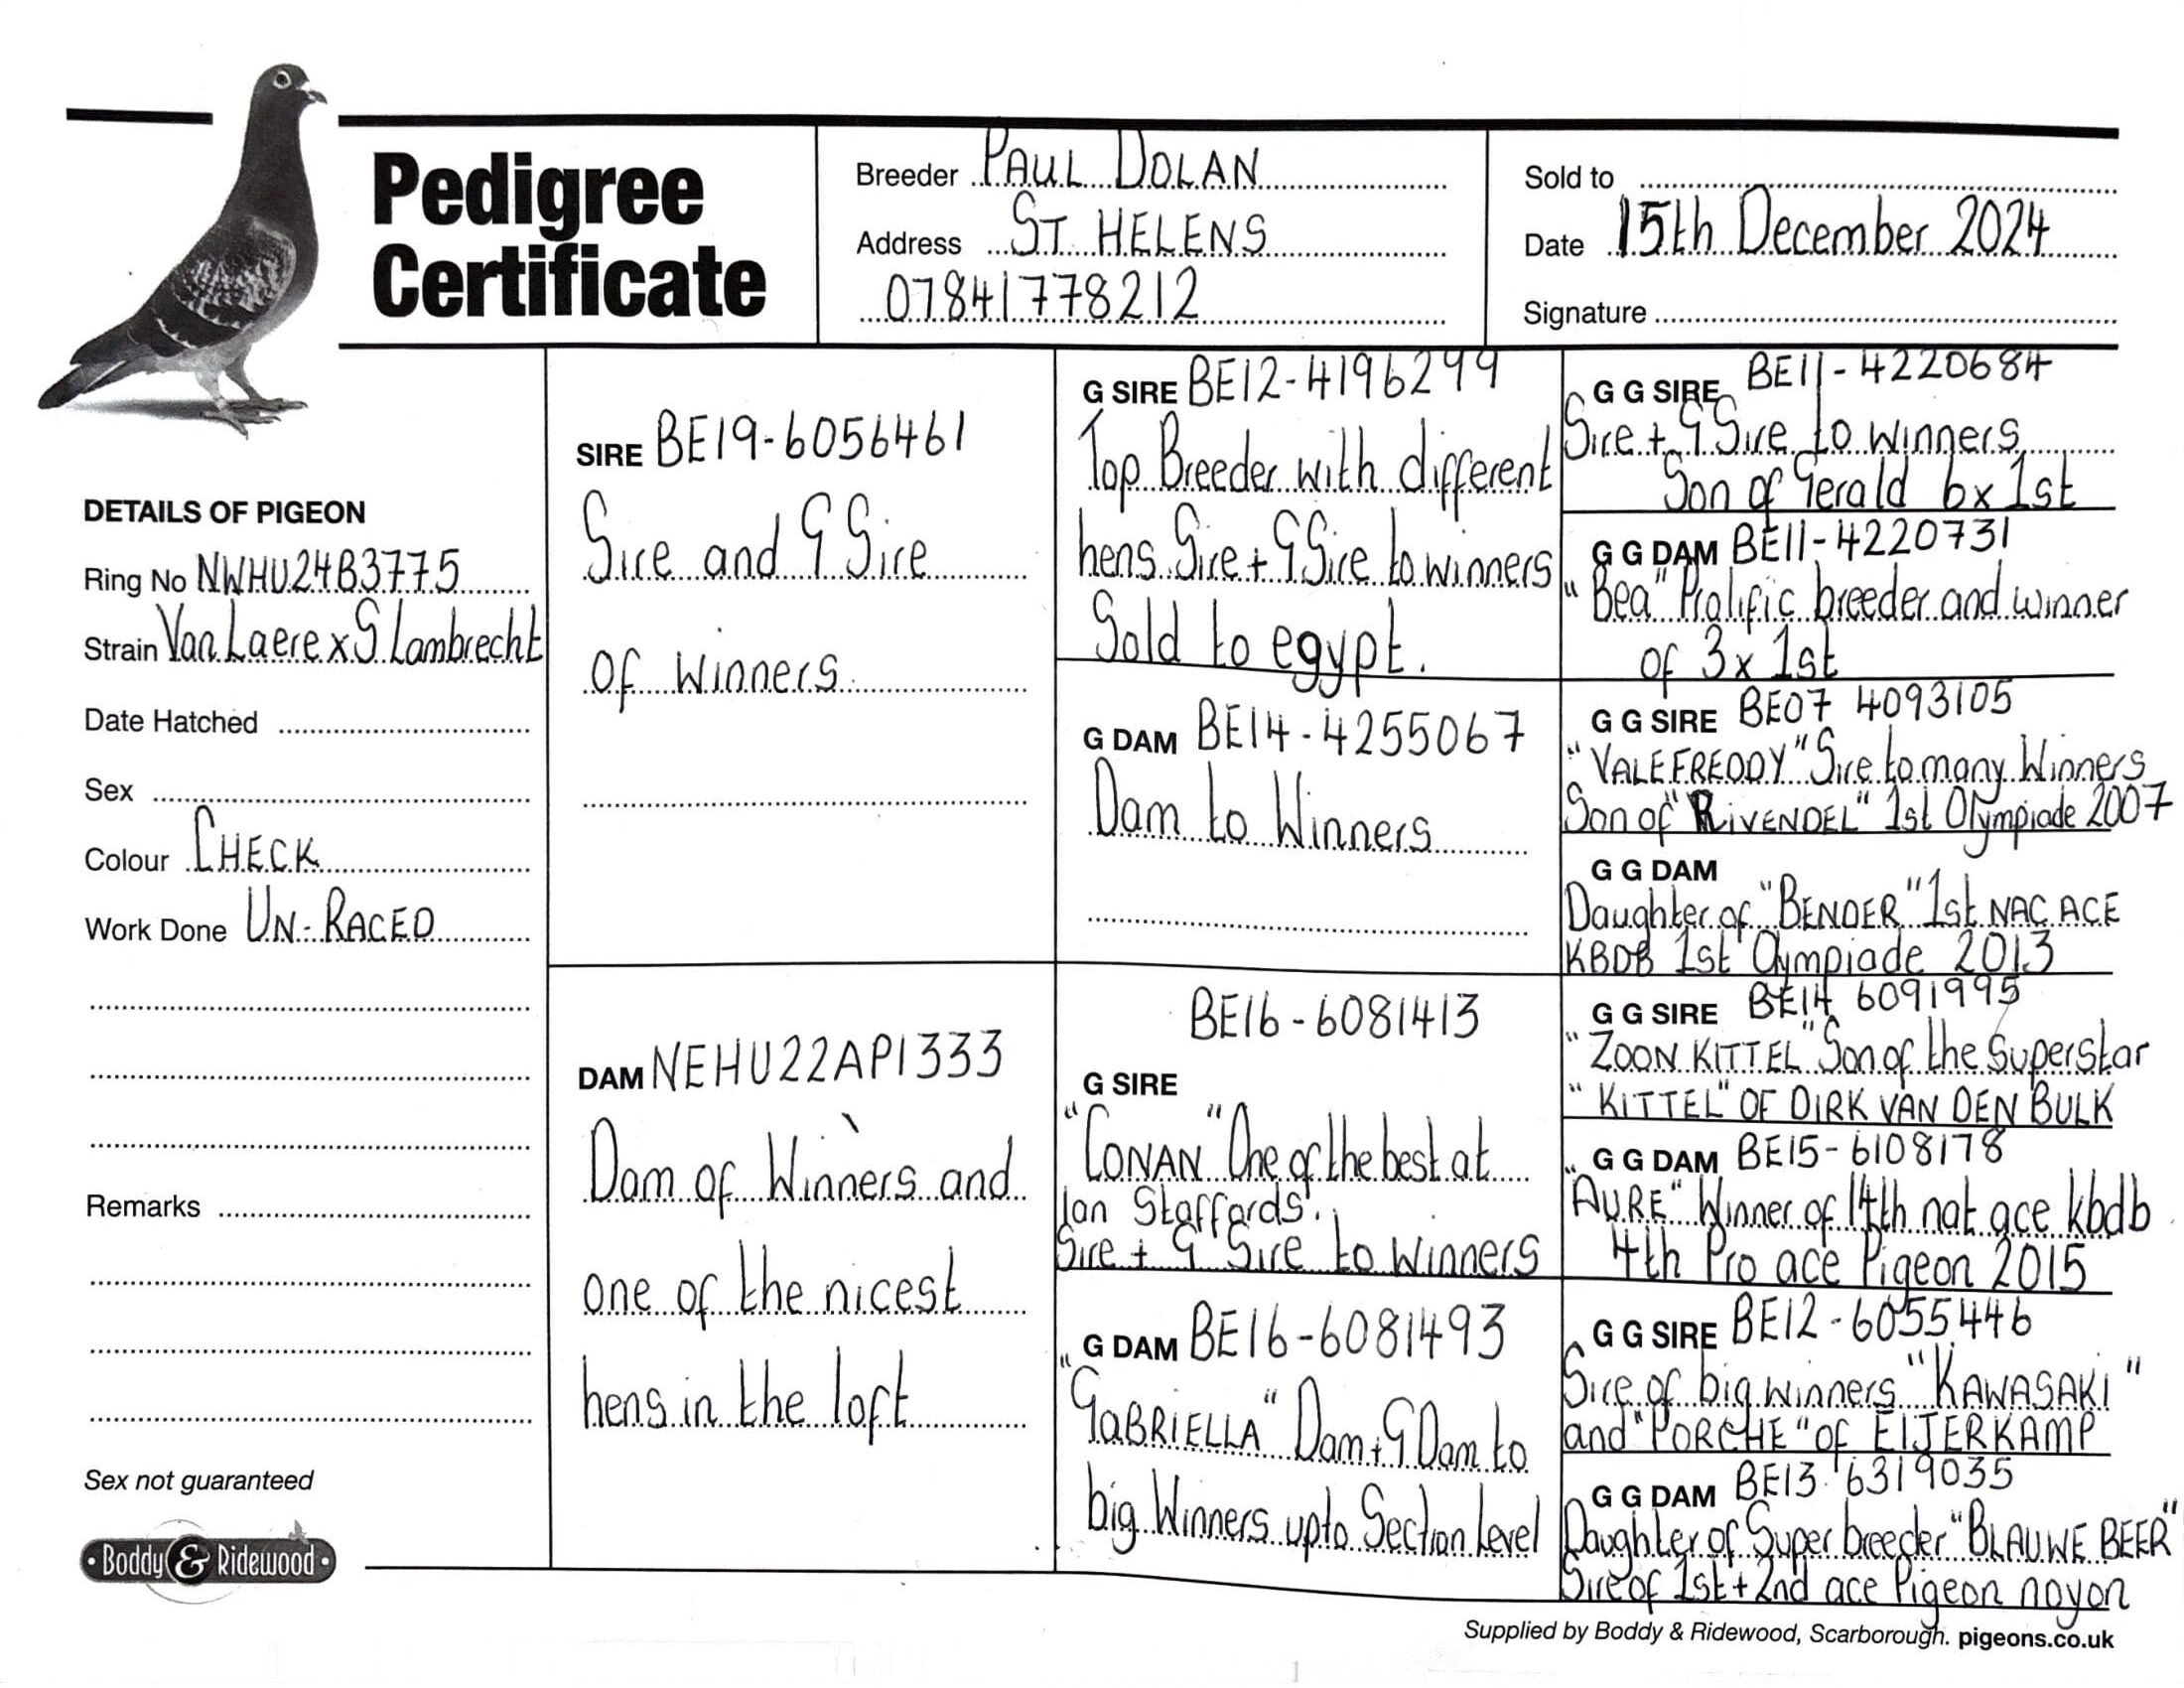 Pedigree
Certificate
Breeder PAUL DOLAN
Address ST HELENS
07841778212
Sold to
Date 15th December 2024
Signature
DETAILS OF PIGEON
Ring No NWHU24B3775
Strain Van Laere x G Lambrecht
Date Hatched
Sex
Colour CHECK
Work Done UN-RACED
Remarks
Sex not guaranteed
Boddy & Ridewood
SIRE BE19-6056461
Sire and G Sire
of winners
DAM NEHU22AP1333
Dam of Winners and
one of the nicest
hens in the loft
G SIRE BE12-4196299
Top Breeder with different
hens Sire + G Sire to winners
Sold to egypt.
G DAM BE14-4255067
Dam to Winners
BE16-6081413
G SIRE
"CONAN" One of the best at
Ian Staffords'.
Sire + G Sire to winners
G DAM BE16-6081493
"GABRIELLA" Dam + G Dam to
big Winners upto Section level
G G SIRE BE11-4220684
Sire + G Sire to winners
Son of Gerald 6x 1st
G G DAM BE11-4220731
"Bea" Prolific breeder and winner
of 3x 1st
G G SIRE BE07 4093105
"VALEFREDDY" Sire to many Winners
Son of "RIVENDEL" 1st Olympiade 2007
G G DAM
Daughter of "BENDER" 1st NAC ACE
KBDB 1st Olympiade 2013
G G SIRE BE14 6091995
"ZOON KITTEL" Son of the Superstar
"KITTEL" OF DIRK VAN DEN BULK
G G DAM BE15-6108178
"AURE" Winner of 14th nat ace kbdb
4th Pro ace Pigeon 2015
G G SIRE BE12-6055446
Sire of big winners "KAWASAKI"
and "PORCHE" of EIJERKAMP
G G DAM BE13 6319035
Daughter of Super breeder "BLAUWE BEER"
Sire of 1st + 2nd ace Pigeon noyon
Supplied by Boddy & Ridewood, Scarborough. pigeons.co.uk